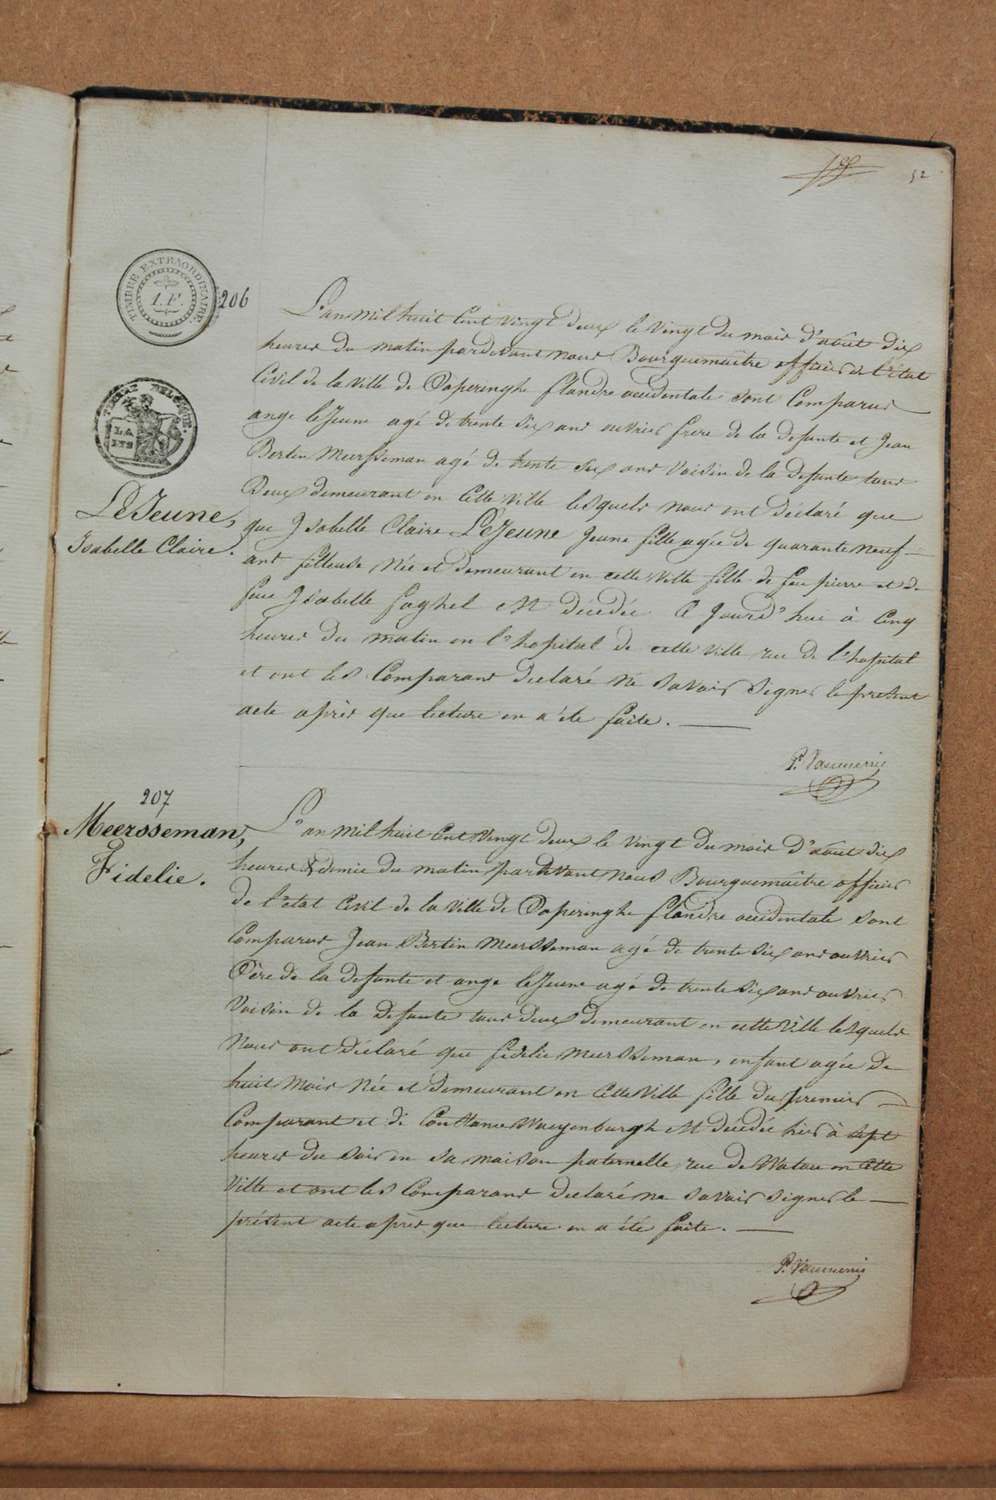 52
TIMBRE EXTRAORDINAIRE.
1. F.
206
L'an mil huit Cent vingt deux le vingt du mois d'août dix
heures du matin pardevant nous Bourguemaître officier de l'état
Civil de la ville de Poperinghe flandre occidentale sont Comparus
ange leJeune agé de trente six ans ouvrier frere de la defunte et Jean
Bertin Meersseman agé de trente six ans voisin de la defunte tous
Deux demeurant en Cette ville lesquels nous ont declaré que
LeJeune,
Isabelle Claire.
que Isabelle Claire LeJeune Jeune fille agée de quarante neuf
ans fileuse, Née et demeurant en cette ville fille de feu pierre et de
feue Isabelle faghel est décédée Ce Jourd'hui à Cinq
heures du matin en l'hopital de cette ville rue de l'hopital
et ont les Comparans declaré ne savoir signer le présent
acte après que lecture en a été faite.
P. Vanmerris
207
Meersseman,
Fidelie.
L'an mil huit Cent vingt deux le vingt du mois d'août dix
heures & demie du matin pardevant nous Bourguemaître officier
de l'état Civil de la ville de Poperinghe flandre occidentale sont
Comparus Jean Bertin Meersseman agé de trente six ans ouvrier
Père de la defunte et ange leJeune agé de trente six ans ouvrier
Voisin de la defunte tous deux demeurant en cette ville lesquels
Nous ont déclaré que fidelie Meersseman, enfant agée de
huit mois Née et demeurant en Cette ville fille du premier
Comparant et de Constance est décédée hier à sept
heures du soir en sa maison paternelle, rue de Watou en Cette
Ville et ont les Comparans declaré ne savoir signer le
présent acte après que lecture en a été faite.
P. Vanmerris